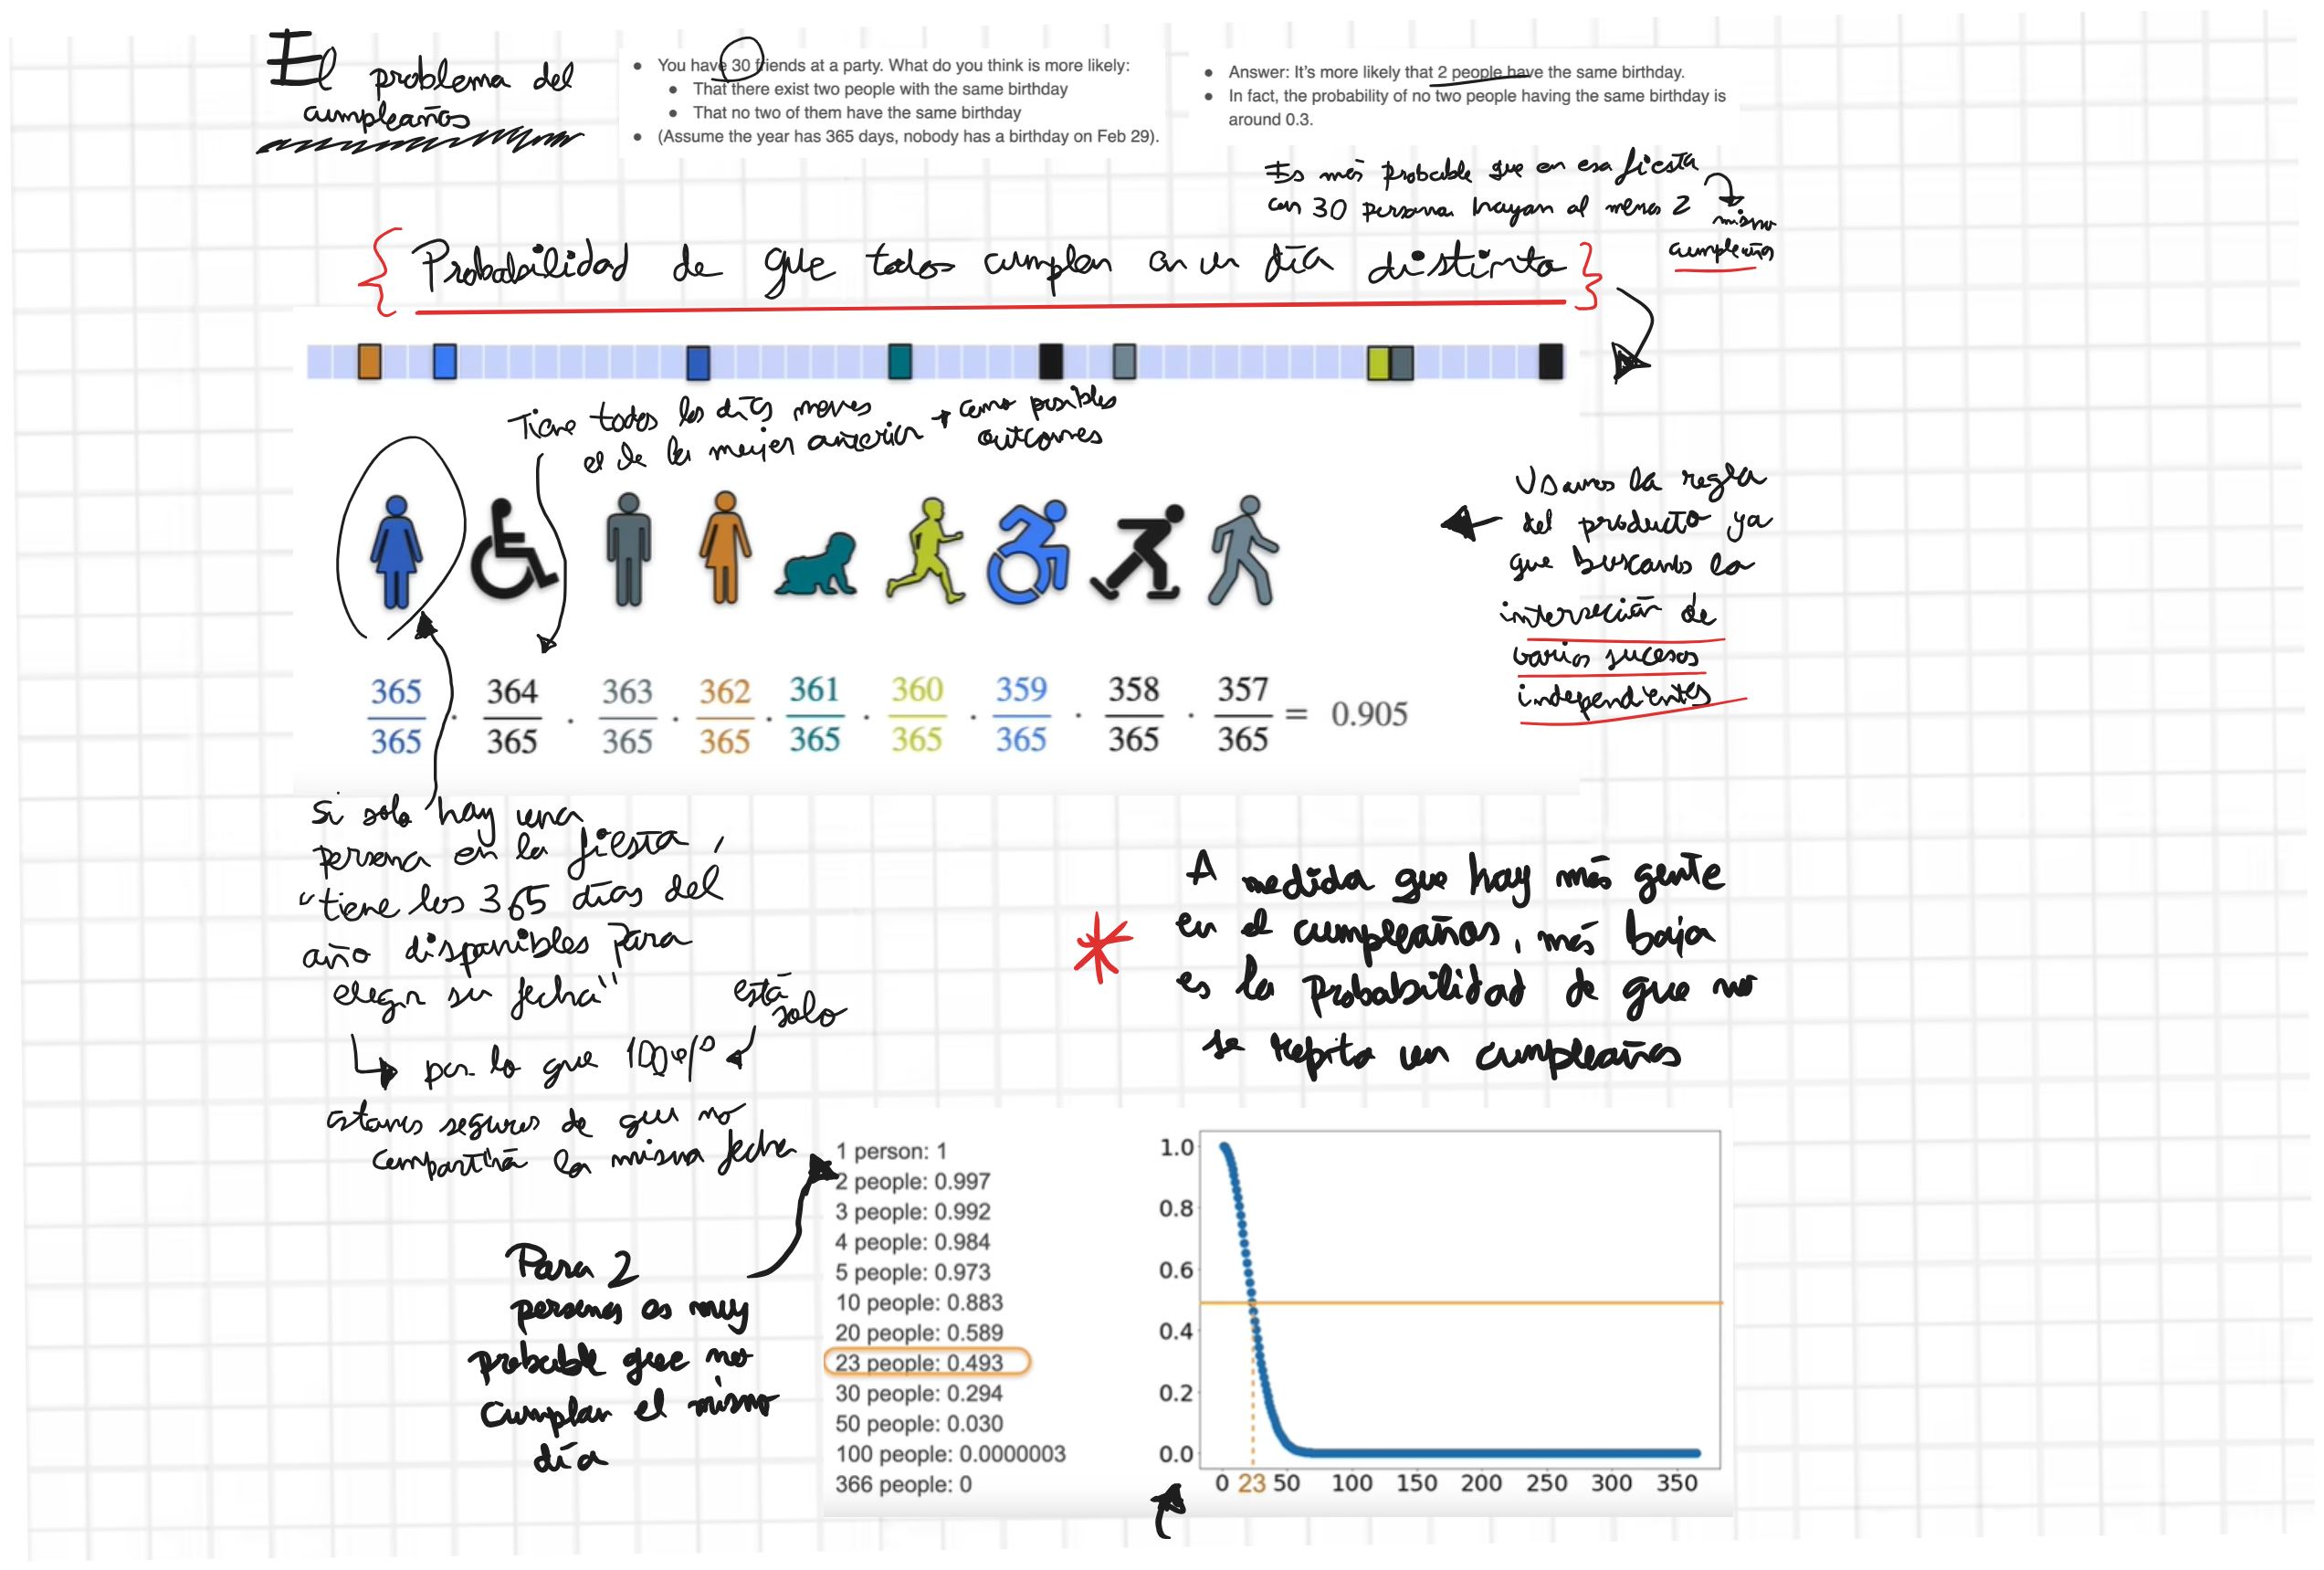 El problema del
cumpleaños
• You have 30 friends at a party. What do you think is more likely:
• That there exist two people with the same birthday
• That no two of them have the same birthday
• (Assume the year has 365 days, nobody has a birthday on Feb 29).
• Answer: It's more likely that 2 people have the same birthday.
• In fact, the probability of no two people having the same birthday is
around 0.3.
Es más probable que en esa fiesta
con 30 persona hayan al menos 2
mismo
cumpleaños
{ Probabilidad de que todos cumplan en un día distinto }
Tiene todos los días menos
el de la mujer anterior → como posibles
outcomes
Usamos la regla
del producto ya
que buscamos la
intersección de
varios sucesos
independientes
365/365 · 364/365 · 363/365 · 362/365 · 361/365 · 360/365 · 359/365 · 358/365 · 357/365 = 0.905
Si solo hay una
persona en la fiesta,
"tiene los 365 días del
año disponibles para
elegir su fecha"
está
solo
por lo que 100%
estamos seguros de que no
compartirá la misma fecha
A medida que hay más gente
en el cumpleaños, más baja
es la probabilidad de que no
se repita un cumpleaños
Para 2
personas es muy
probable que no
cumplan el mismo
día
1 person: 1
2 people: 0.997
3 people: 0.992
4 people: 0.984
5 people: 0.973
10 people: 0.883
20 people: 0.589
23 people: 0.493
30 people: 0.294
50 people: 0.030
100 people: 0.0000003
366 people: 0
1.0
0.8
0.6
0.4
0.2
0.0
0 23 50 100 150 200 250 300 350